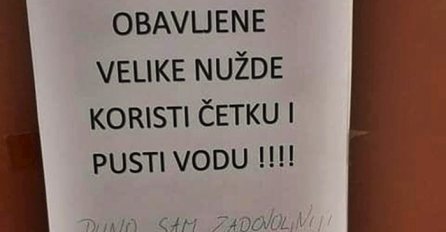 OBAVLJENE
VELIKE NUŽDE
KORISTI ČETKU I
PUSTI VODU !!!!
PUNO SAM ZADOVOLJNIJI